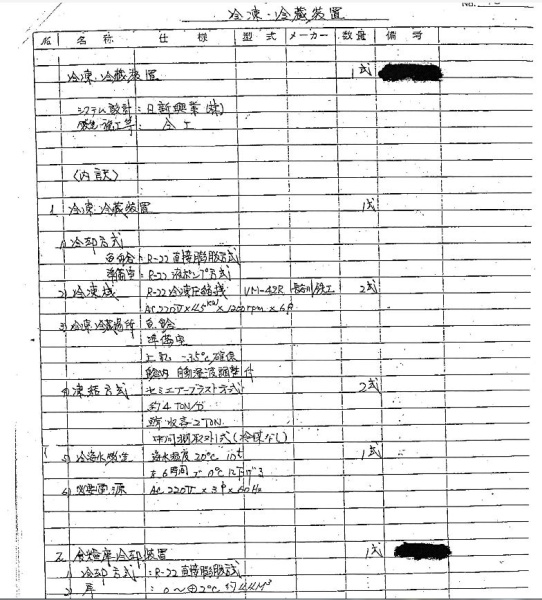 冷凍・冷蔵装置
No.
名称 仕様 型式 メーカー 数量 備考
冷凍・冷蔵装置 1式
システム設計:日新興業(株)
製造・施工等: 仝上
〈内訳〉
1. 冷凍・冷蔵装置 1式
1) 冷却方式
魚艙:R-22 直接膨脹方式
準備室:R-22 液ポンプ方式
2) 冷凍機 R-22冷凍圧縮機 VM-42R 長谷川鉄工 2式
AC 220V×45KW×1200rpm×6P
3) 冷凍冷蔵場所 魚艙
準備室
上記 -35℃確保
艙内 温度調整付
4) 凍結方式 セミエアーブラスト方式 2式
約4 TON/分
2 TON
中間 1式(冷媒なし)
5) 冷海水製造 海水温度20℃ 10t 1式
を6時間で0℃に下げる
6) 電源 AC 220V×3φ×60Hz
2. 食糧庫冷却装置 1式
1) 冷却方式:R-22直接膨脹式
2) 庫 :0~⊕2℃ 約44M³